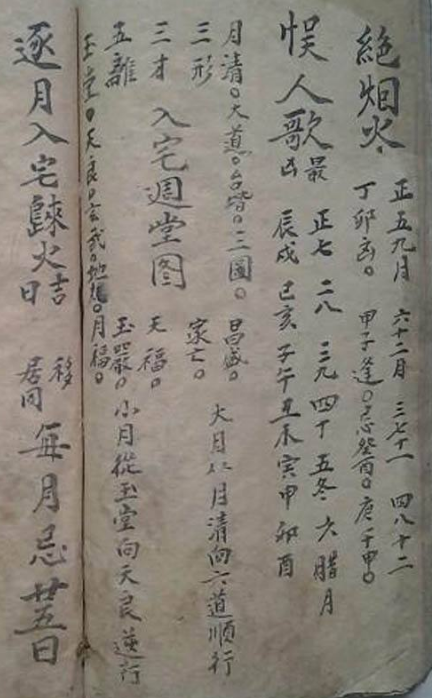 絶烟火
正五九月 六十二月 三七十一 四八十二
丁卯凶。甲子逢。忌癸酉。庚午甲。
悮人歌 最凶
正七 二八 三九 四十 五冬 六腊月
辰戌 已亥 子午 丑未 寅申 卯酉
月清。大道。台堦。三圖。昌盛。
三形 家亡。
大月从月清向六道順行
三才 入宅週堂图 天福。
五離 玉嚴。小月從玉堂向天良逆行
玉堂。天良。玄武。地。月福。
逐月入宅歸火吉日 移居同 每月忌廿五日